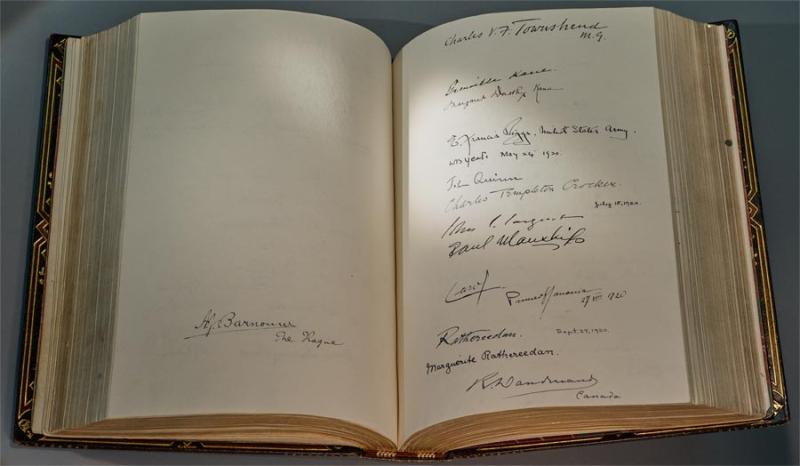 A.J. Barnouw
The Hague
Charles V. F. Townshend
M.G.
Kane
Margaret Kane
E. Francis Riggs, United States Army.
W B Yeats May 24 1920.
John Quinn
Charles Templeton Crocker.
July 18, 1920.
John S. Sargent
Paul Manship
Carol
Prince of Romania
1920
Rathcreedan.
Sept. 27, 1920.
Marguerite Rathcreedan.
Canada